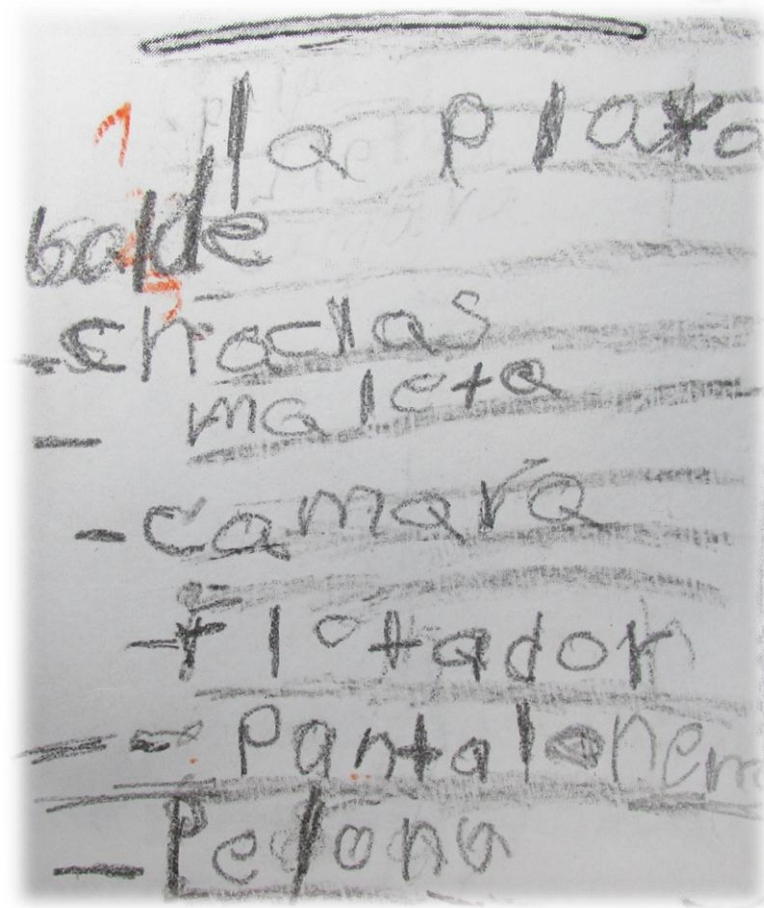 1 la plata
balde
- choclas
- maleta
- camara
- flotador
-- pantalonem
- Pelona